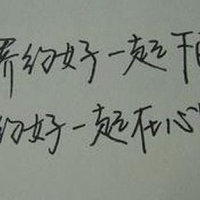 约好一起干
约好一起在心